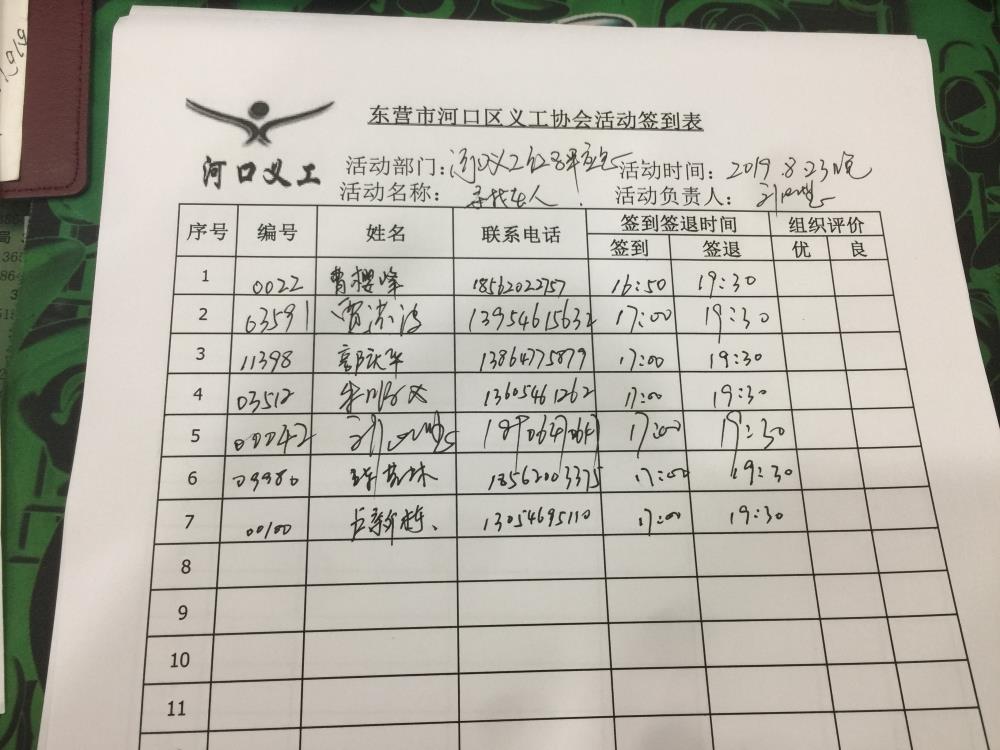 东营市河口区义工协会活动签到表
河口义工
活动部门: 河口义工
活动时间: 2019.8.23
活动名称: 寻找老人
活动负责人:
序号 编号 姓名 联系电话 签到签退时间 组织评价
签到 签退 优 良
1 0022 曹樱峰 18562022757 16:50 19:30
2 03591 13954615632 17:00 19:30
3 11398 郭庆华 13864775879 17:00 19:30
4 03512 13605461262 17:00 19:30
5 00042 17:00 19:30
6 09980 18562003375 17:00 19:30
7 00100 13054695110 17:00 19:30
8
9
10
11